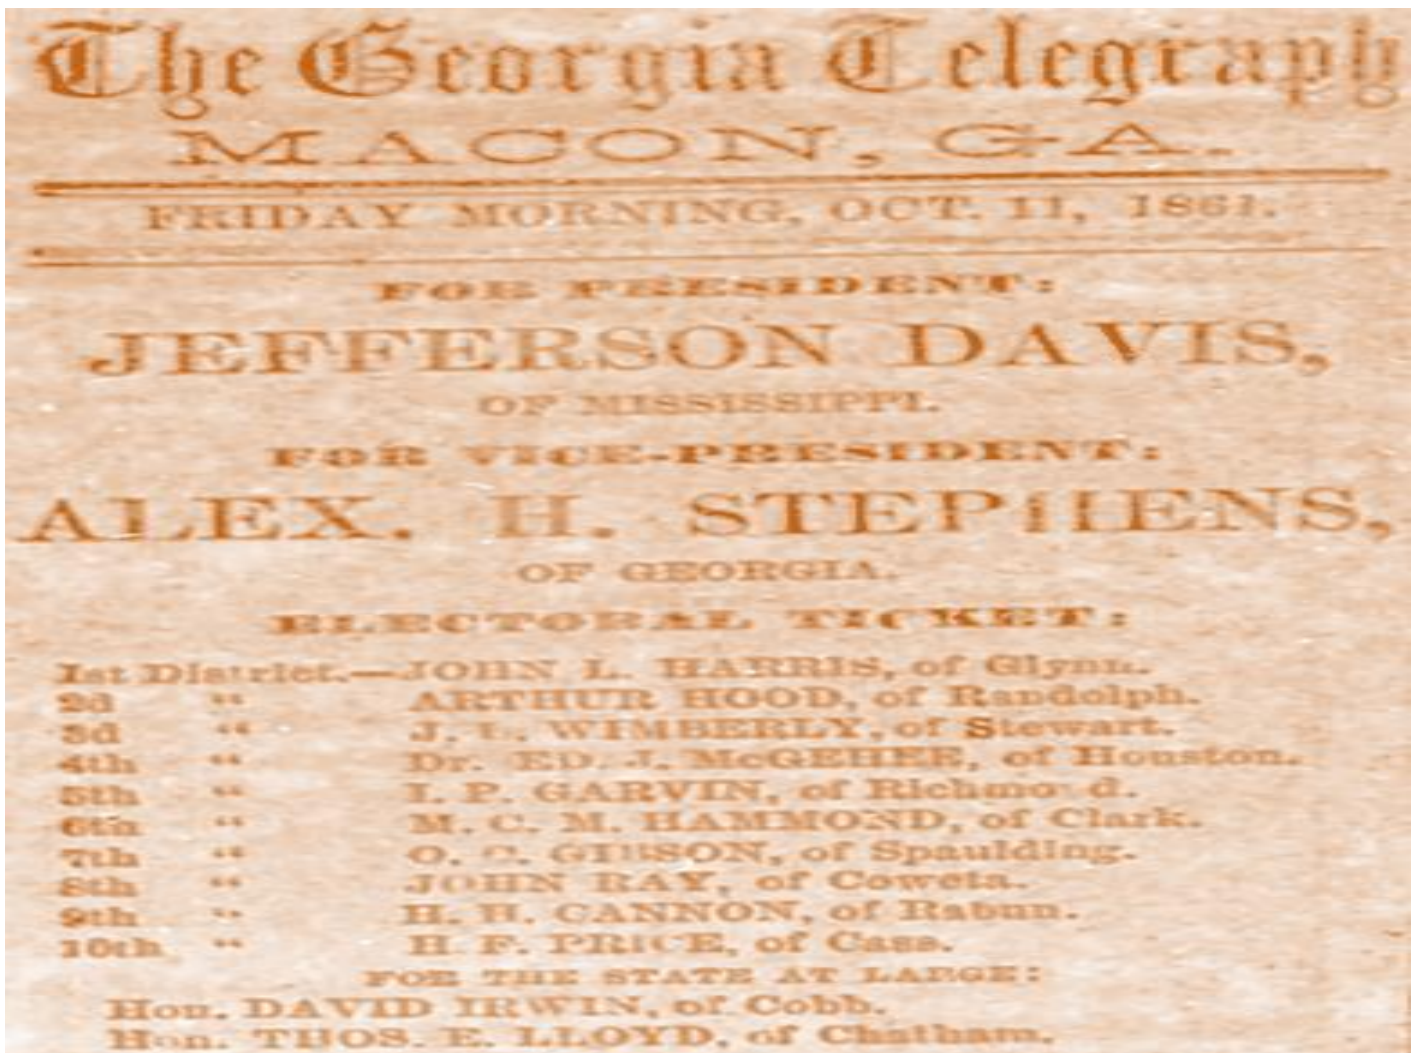 The Georgia Telegraph
MACON, GA.
FRIDAY MORNING, OCT. 11, 1861.
FOR PRESIDENT:
JEFFERSON DAVIS,
OF MISSISSIPPI.
FOR VICE-PRESIDENT:
ALEX. H. STEPHENS,
OF GEORGIA.
ELECTORAL TICKET:
1st District.—JOHN L. HARRIS, of Glynn.
2d “ ARTHUR HOOD, of Randolph.
3d “ J. L. WIMBERLY, of Stewart.
4th “ Dr. ED. J. McGEHEE, of Houston.
5th “ I. P. GARVIN, of Richmond.
6th “ M. C. M. HAMMOND, of Clark.
7th “ O. GIBSON, of Spaulding.
8th “ JOHN RAY, of Coweta.
9th “ H. H. CANNON, of Rabun.
10th “ H F. PRICE, of Cass.
FOR THE STATE AT LARGE:
Hon. DAVID IRWIN, of Cobb.
Hon. THOS. E. LLOYD, of Chatham.